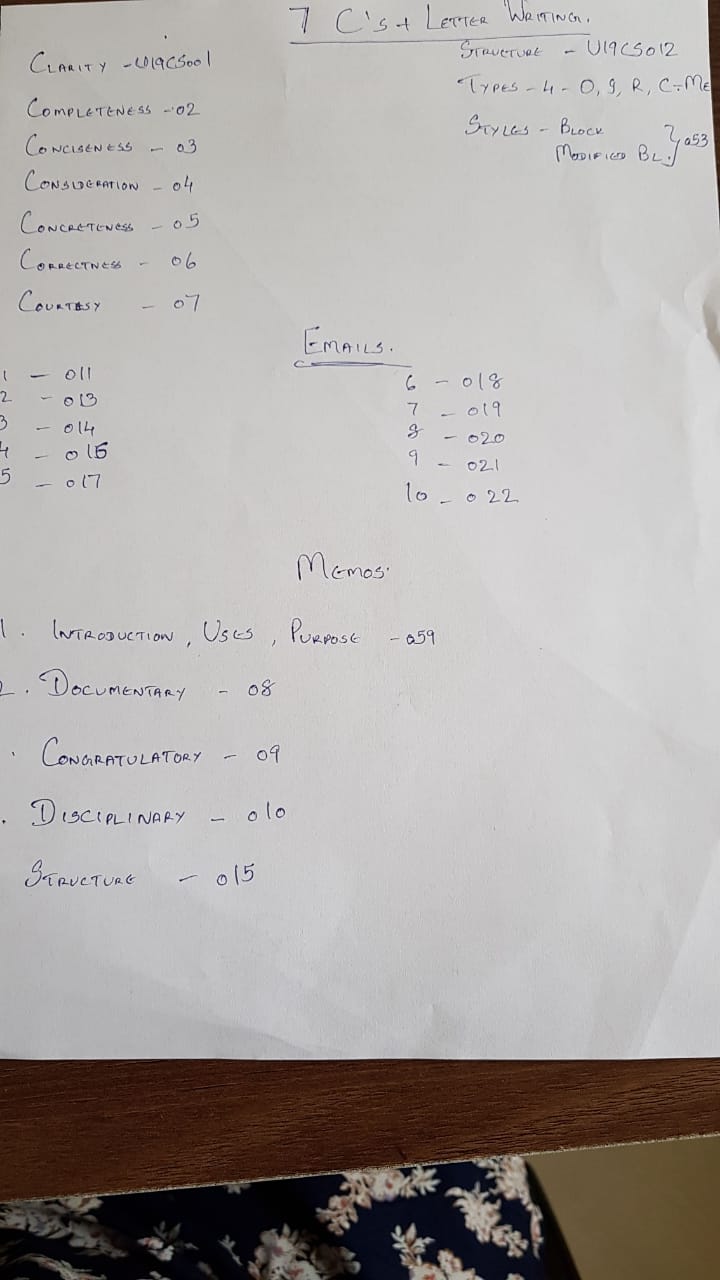 7 C's + LETTER WRITING.
CLARITY - U19CS001
COMPLETENESS - 02
CONCISENESS - 03
CONSIDERATION - 04
CONCRETENESS - 05
CORRECTNESS - 06
COURTESY - 07
STRUCTURE - U19CS012
TYPES - 4 - O, I, R, C - ME
STYLES - BLOCK
MODIFIED BL. } a53
EMAILS.
1 - 011
2 - 013
3 - 014
4 - 016
5 - 017
6 - 018
7 - 019
8 - 020
9 - 021
10 - 022
MEMOS.
1. INTRODUCTION, USES, PURPOSE - a59
2. DOCUMENTARY - 08
. CONGRATULATORY - 09
. DISCIPLINARY - 010
STRUCTURE - 015